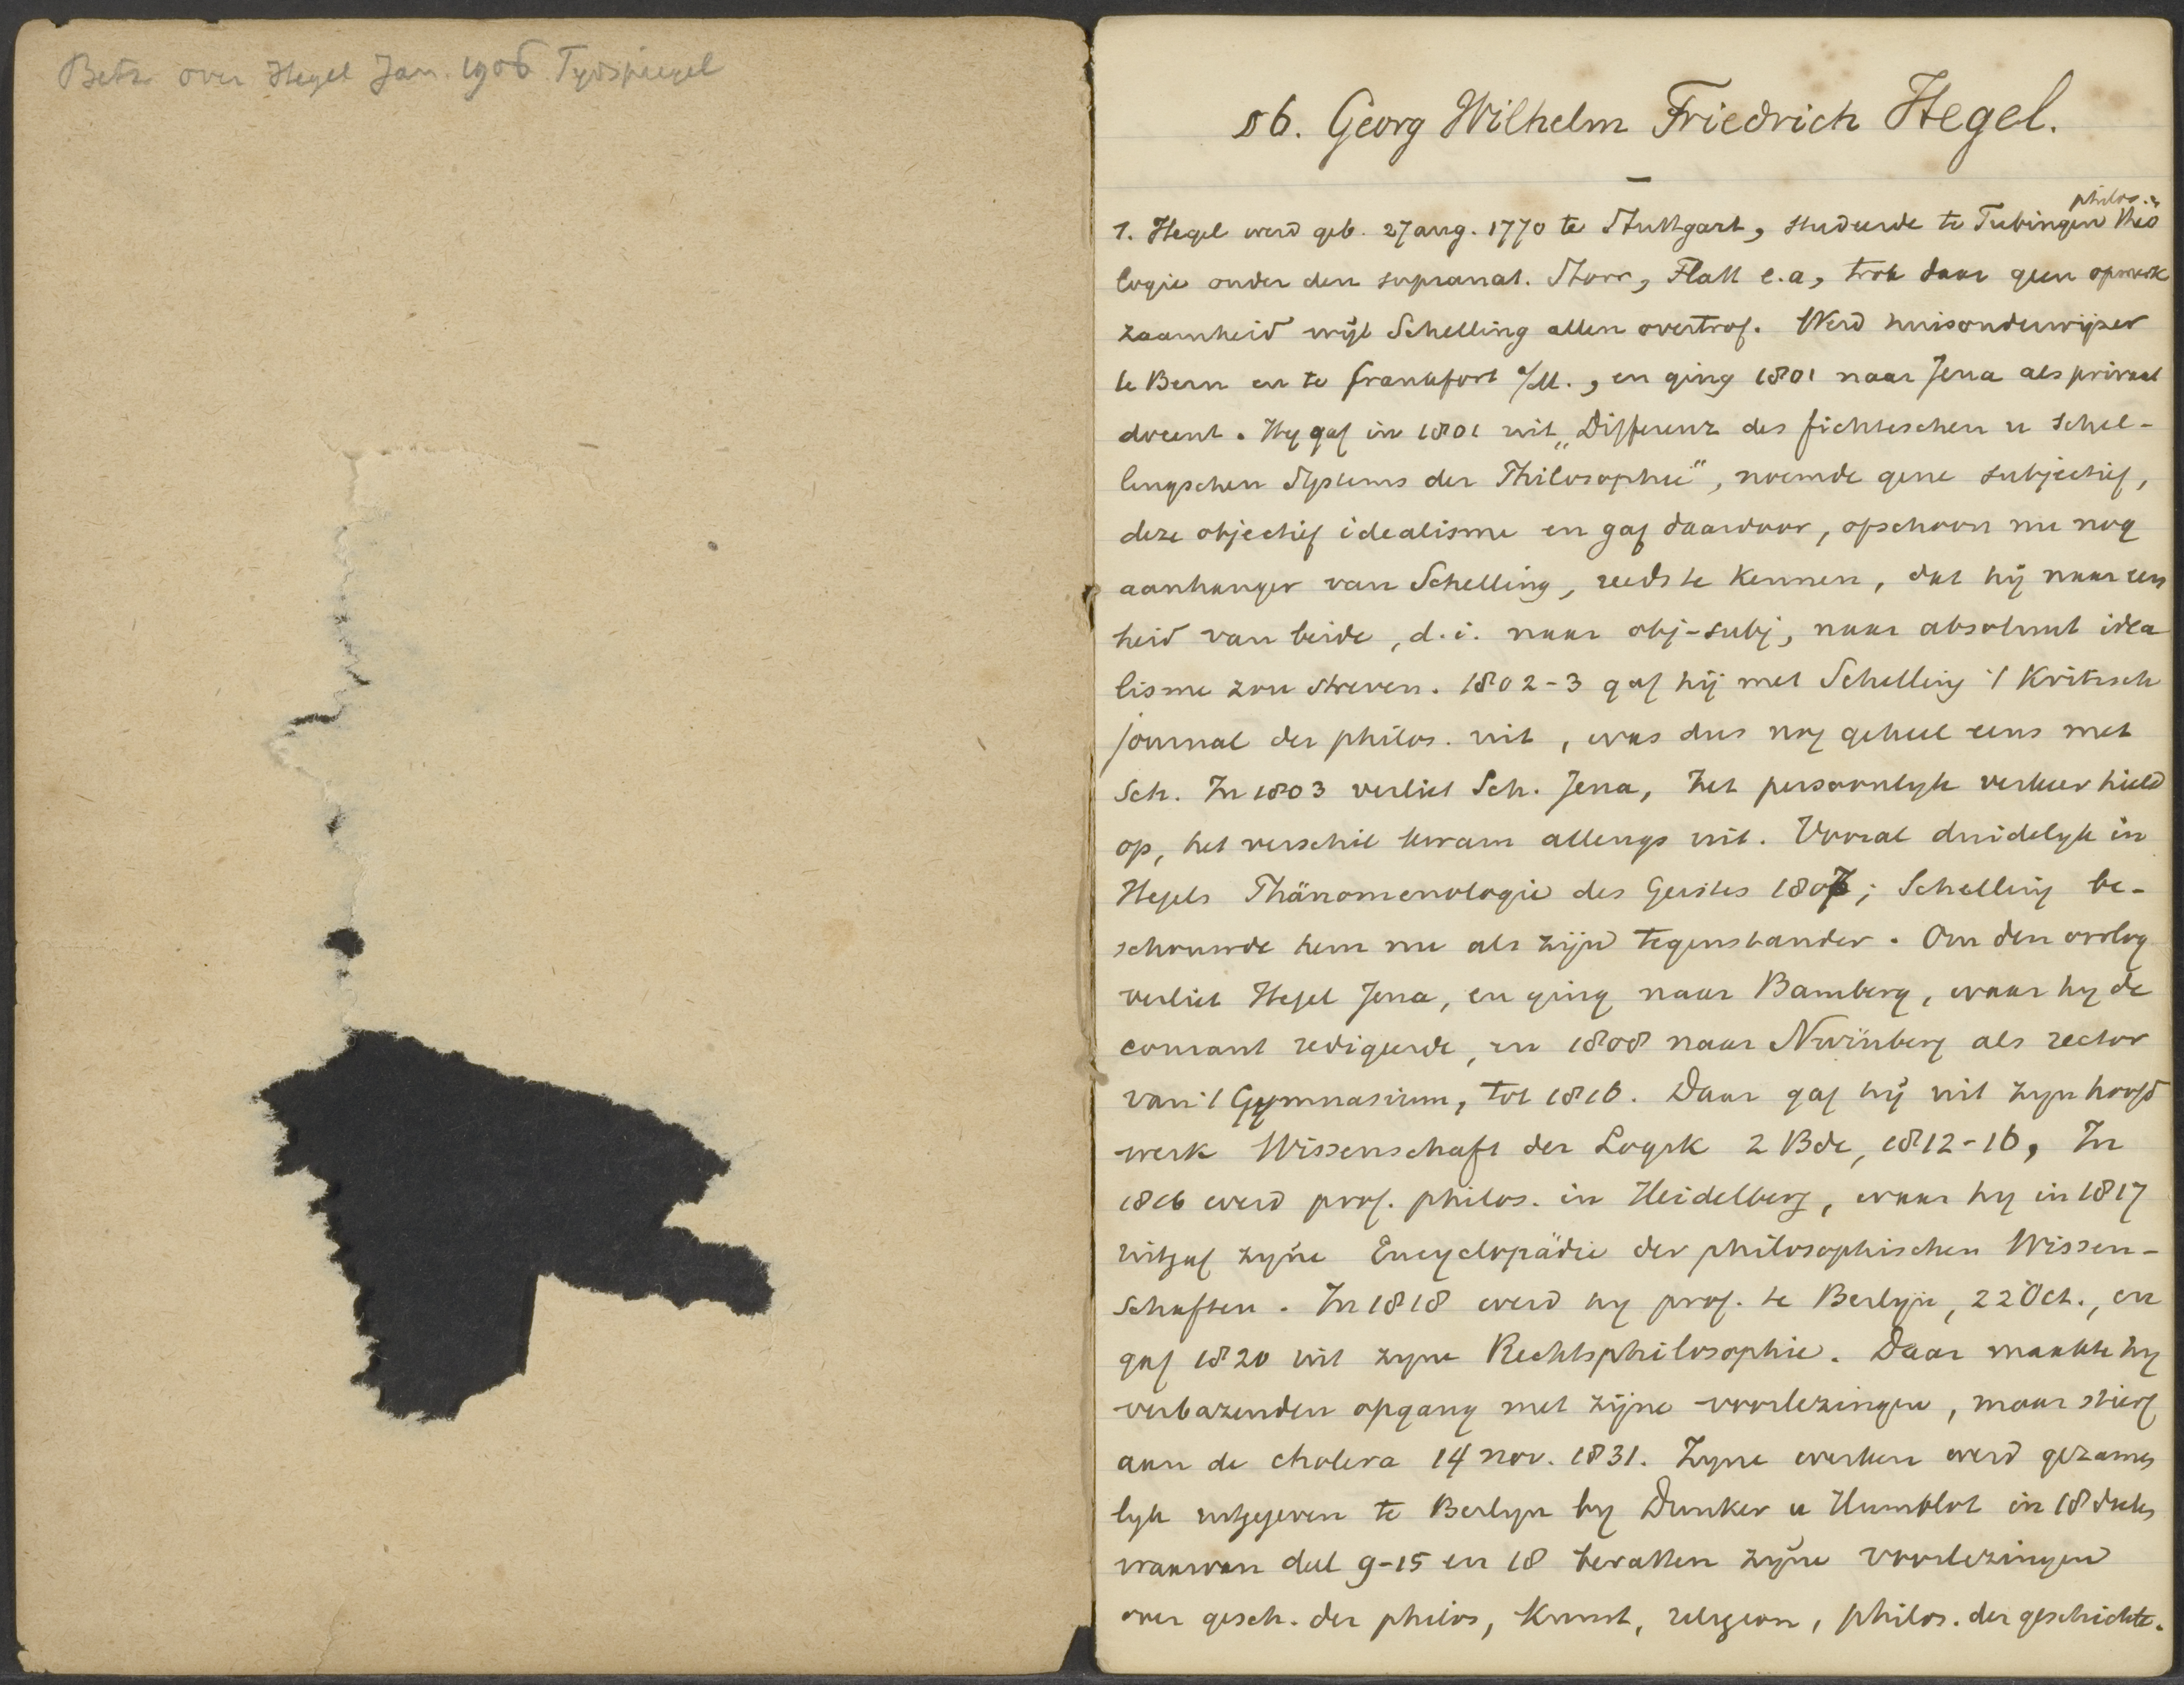 Betz over Hegel Jan. 1906 Tydspiegel
§6. Georg Wilhelm Friedrich Hegel.
philos. en
1. Hegel werd geb. 27 aug. 1770 te Stuttgart, studeerde te Tubingen theo
logie onder den supranat. Storr, Flatt e.a, trok daar geen opmerk
zaamheid wijl Schelling allen overtrof. Werd huisonderwijzer
te Bern en te Frankfort a/M., en ging 1801 naar Jena als privaat
docent. Hy gaf in 1801 uit „Differenz des fichteschen u Schel-
lingschen Systems der Philosophie", noemde gene subjectief,
deze objectief idealisme en gaf daardoor, opschoon nu nog
aanhanger van Schelling, reeds te kennen, dat hij naar een
heid van beide, d.i. naar obj-subj, naar absoluut idea
lisme zou streven. 1802-3 gaf hij met Schelling 't Kritisch
journal der philos. uit, was dus nog geheel eens met
Sch. In 1803 verliet Sch. Jena, het persoonlyk verkeer hield
op, het verschil kwam allengs uit. Vooral duidelyk in
Hegels Phänomenologie des Geistes 1807; Schelling be-
schouwde hem nu als zijn tegenstander. Om den oorlog
verliet Hegel Jena, en ging naar Bamberg, waar hy de
courant redigeerde, en 1808 naar Nürnberg als rector
van 't Gymnasium, tot 1816. Daar gaf hij uit zyn hoofd
werk Wissenschaft der Logik 2 Bde, 1812-16, In
1816 werd prof. philos. in Heidelberg, waar hy in 1817
uitgaf zyne Encyclopädie der philosophischen Wissen-
schaften. In 1818 werd hy prof. te Berlyn, 22 Oct., en
gaf 1820 uit zyne Rechtsphilosophie. Daar maakte hy
verbazenden opgang met zijne voorlezingen, maar stierf
aan de cholera 14 nov. 1831. Zyne werken werd gezamen
lyk uitgegeven te Berlyn by Dunker u Humblot in 18 deelen
waarvan deel 9-15 en 18 bevatten zyne voorlezingen
over gesch. der philos, Kunst, religion, philos. der geschichte.